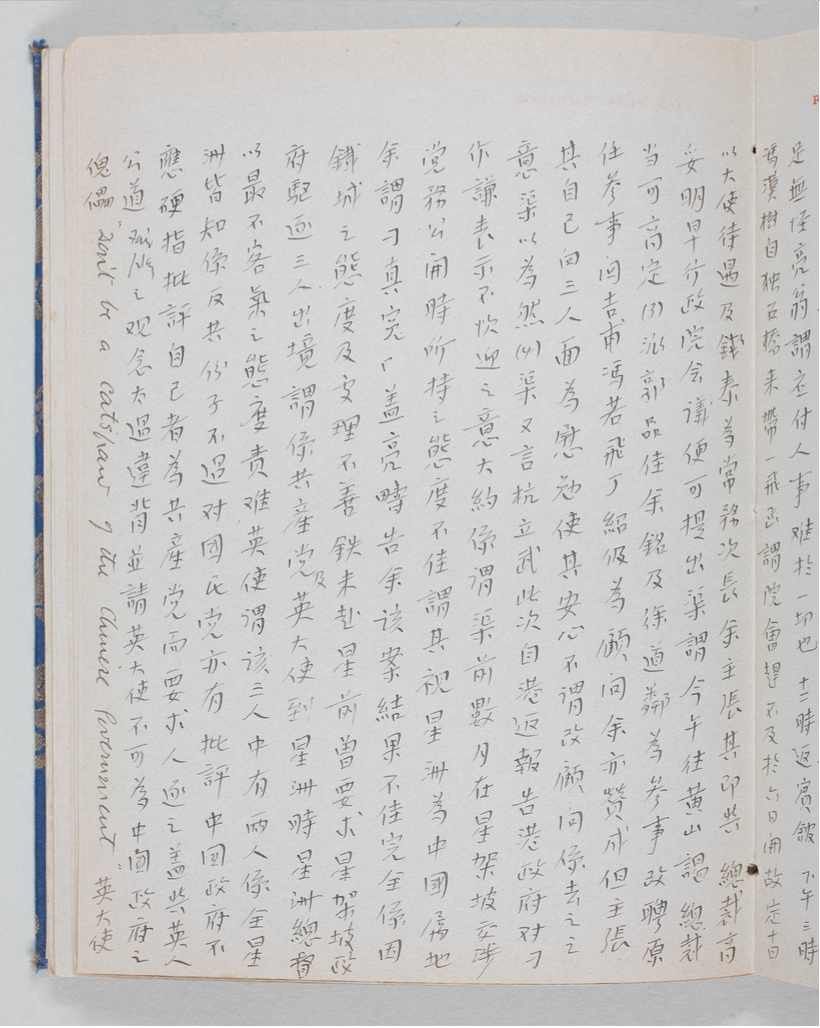 足無怪亮翁謂应付人事难於一切也 十二時返賓館 下午三時
馮漢樹自独石橋来帶一飛函謂院會趕不及於六日開故定十日
以大使待遇及鉄泰為常務次長余主張其即與總裁商
妥明早行政院会議便可提出渠謂今午往黄山謁總裁
当可商定(3)派郭品佳余銘及徐道鄰為参事改聘原
任参事问吉甫馮若飛丁紹伋為顧问余亦贊成但主張
其自己向三人面為慰勉使其安心不謂改顧问係去之之
意渠以為然(4)渠又言杭立武此次自港返報告港政府对刁
作謙表示不欢迎之意大約係渭渠前數月在星架坡交涉
党務公開時所持之態度不佳謂其視星洲為中國属地
余謂刁真寃了盖亮疇告余該案結果不佳完全係因
鉄城之態度及处理不善鉄未赴星前曾要求星架坡政
府駆逐三人出境謂係共產党及英大使到星洲時星洲總督
以最不客氣之態度責难英使谓該三人中有兩人係全星
洲皆知係反共份子不過对國民党亦有批評中国政府不
應硬指批評自己者為共產党而要求人逐之盖與英人
公道之观念太過違背並請英大使不可為中國政府之
傀儡 "Don't be a catspaw of the Chinese Government" 英大使